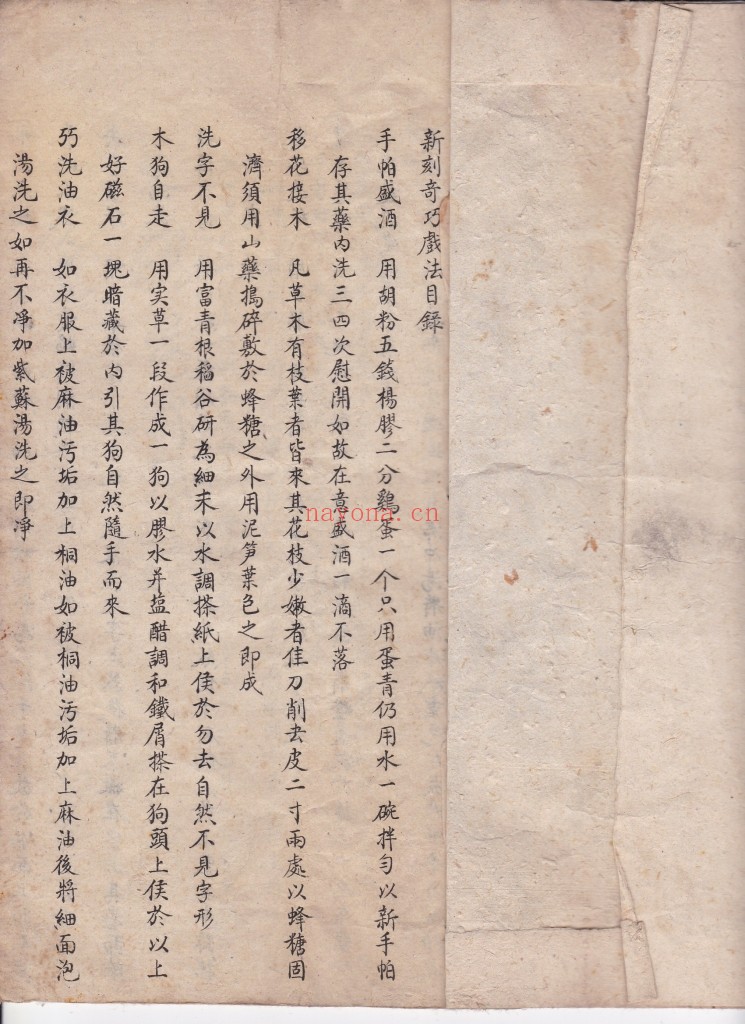 新刻奇巧戲法目錄
手帕盛酒　用胡粉五錢楊膠二分鷄蛋一个只用蛋青仍用水一碗拌勻以新手帕
存其藥內洗三四次慰開如故在意盛酒一滴不落
移花接木　凡草木有枝葉者皆來其花枝少嫩者佳刀削去皮二寸兩處以蜂糖固
濟須用山藥搗碎敷於蜂糖之外用泥笋葉色之即成
洗字不見　用富青根稻谷研為細末以水調搽紙上俟於勿去自然不見字形
木狗自走　用实草一段作成一狗以膠水并盐醋調和鐵屑搽在狗頭上俟於以上
好磁石一塊暗藏於內引其狗自然隨手而來
巧洗油衣　如衣服上被麻油污垢加上桐油如被桐油污垢加上麻油後將細面泡
湯洗之如再不凈加紫蘇湯洗之即凈
nayona.cn